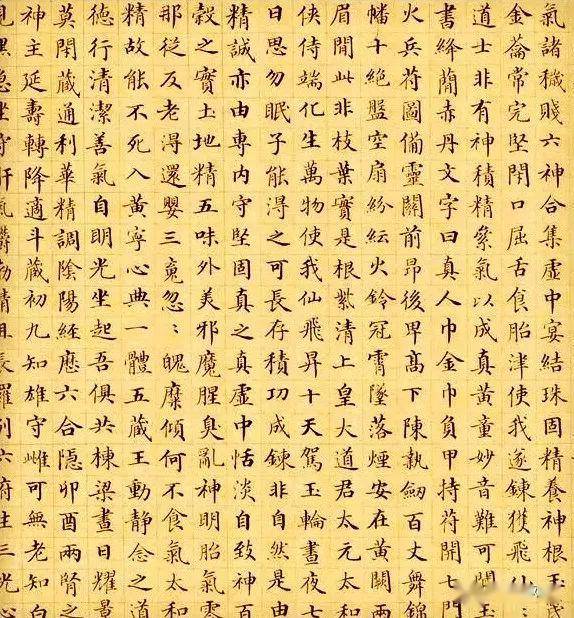 氣諸穢賤六神合集虛中宴結珠固精養神根玉茂
金籥常完堅閇口屈舌食胎津使我遂鍊獲飛仙：
道士非有神積精絫氣以成真黃童妙音難可聞玉
書絳蕑赤丹文字曰真人巾金巾負甲持符開七門
火兵符圖備靈關前昂後卑高下陳執劒百丈舞錦
幡十絕盤空扇紛紜火鈴冠霄墜落煙安在黃闕兩
眉閒此非枝葉實是根紫清上皇大道君太元太和
俠侍端化生萬物使我仙飛昇十天駕玉輪晝夜七
日思勿眠子能得之可長存積功成鍊非自然是由
精誠亦由專內守堅固真之真虛中恬淡自致神百
穀之實土地精五味外美邪魔腥臭亂神明胎氣零
那從反老得還嬰三䰟忽：魄糜傾何不食氣太和
精故能不死入黃寧心典一體五藏王動靜念之道
德行清潔善氣自明光坐起吾俱共棟梁晝日耀景
莫閇藏通利華精調陰陽經應六合隱卯酉兩腎之
神主延壽轉降適斗藏初九知雄守雌可無老知白
見黑急坐守肝氣鬱勃清且長羅列六府生三光心